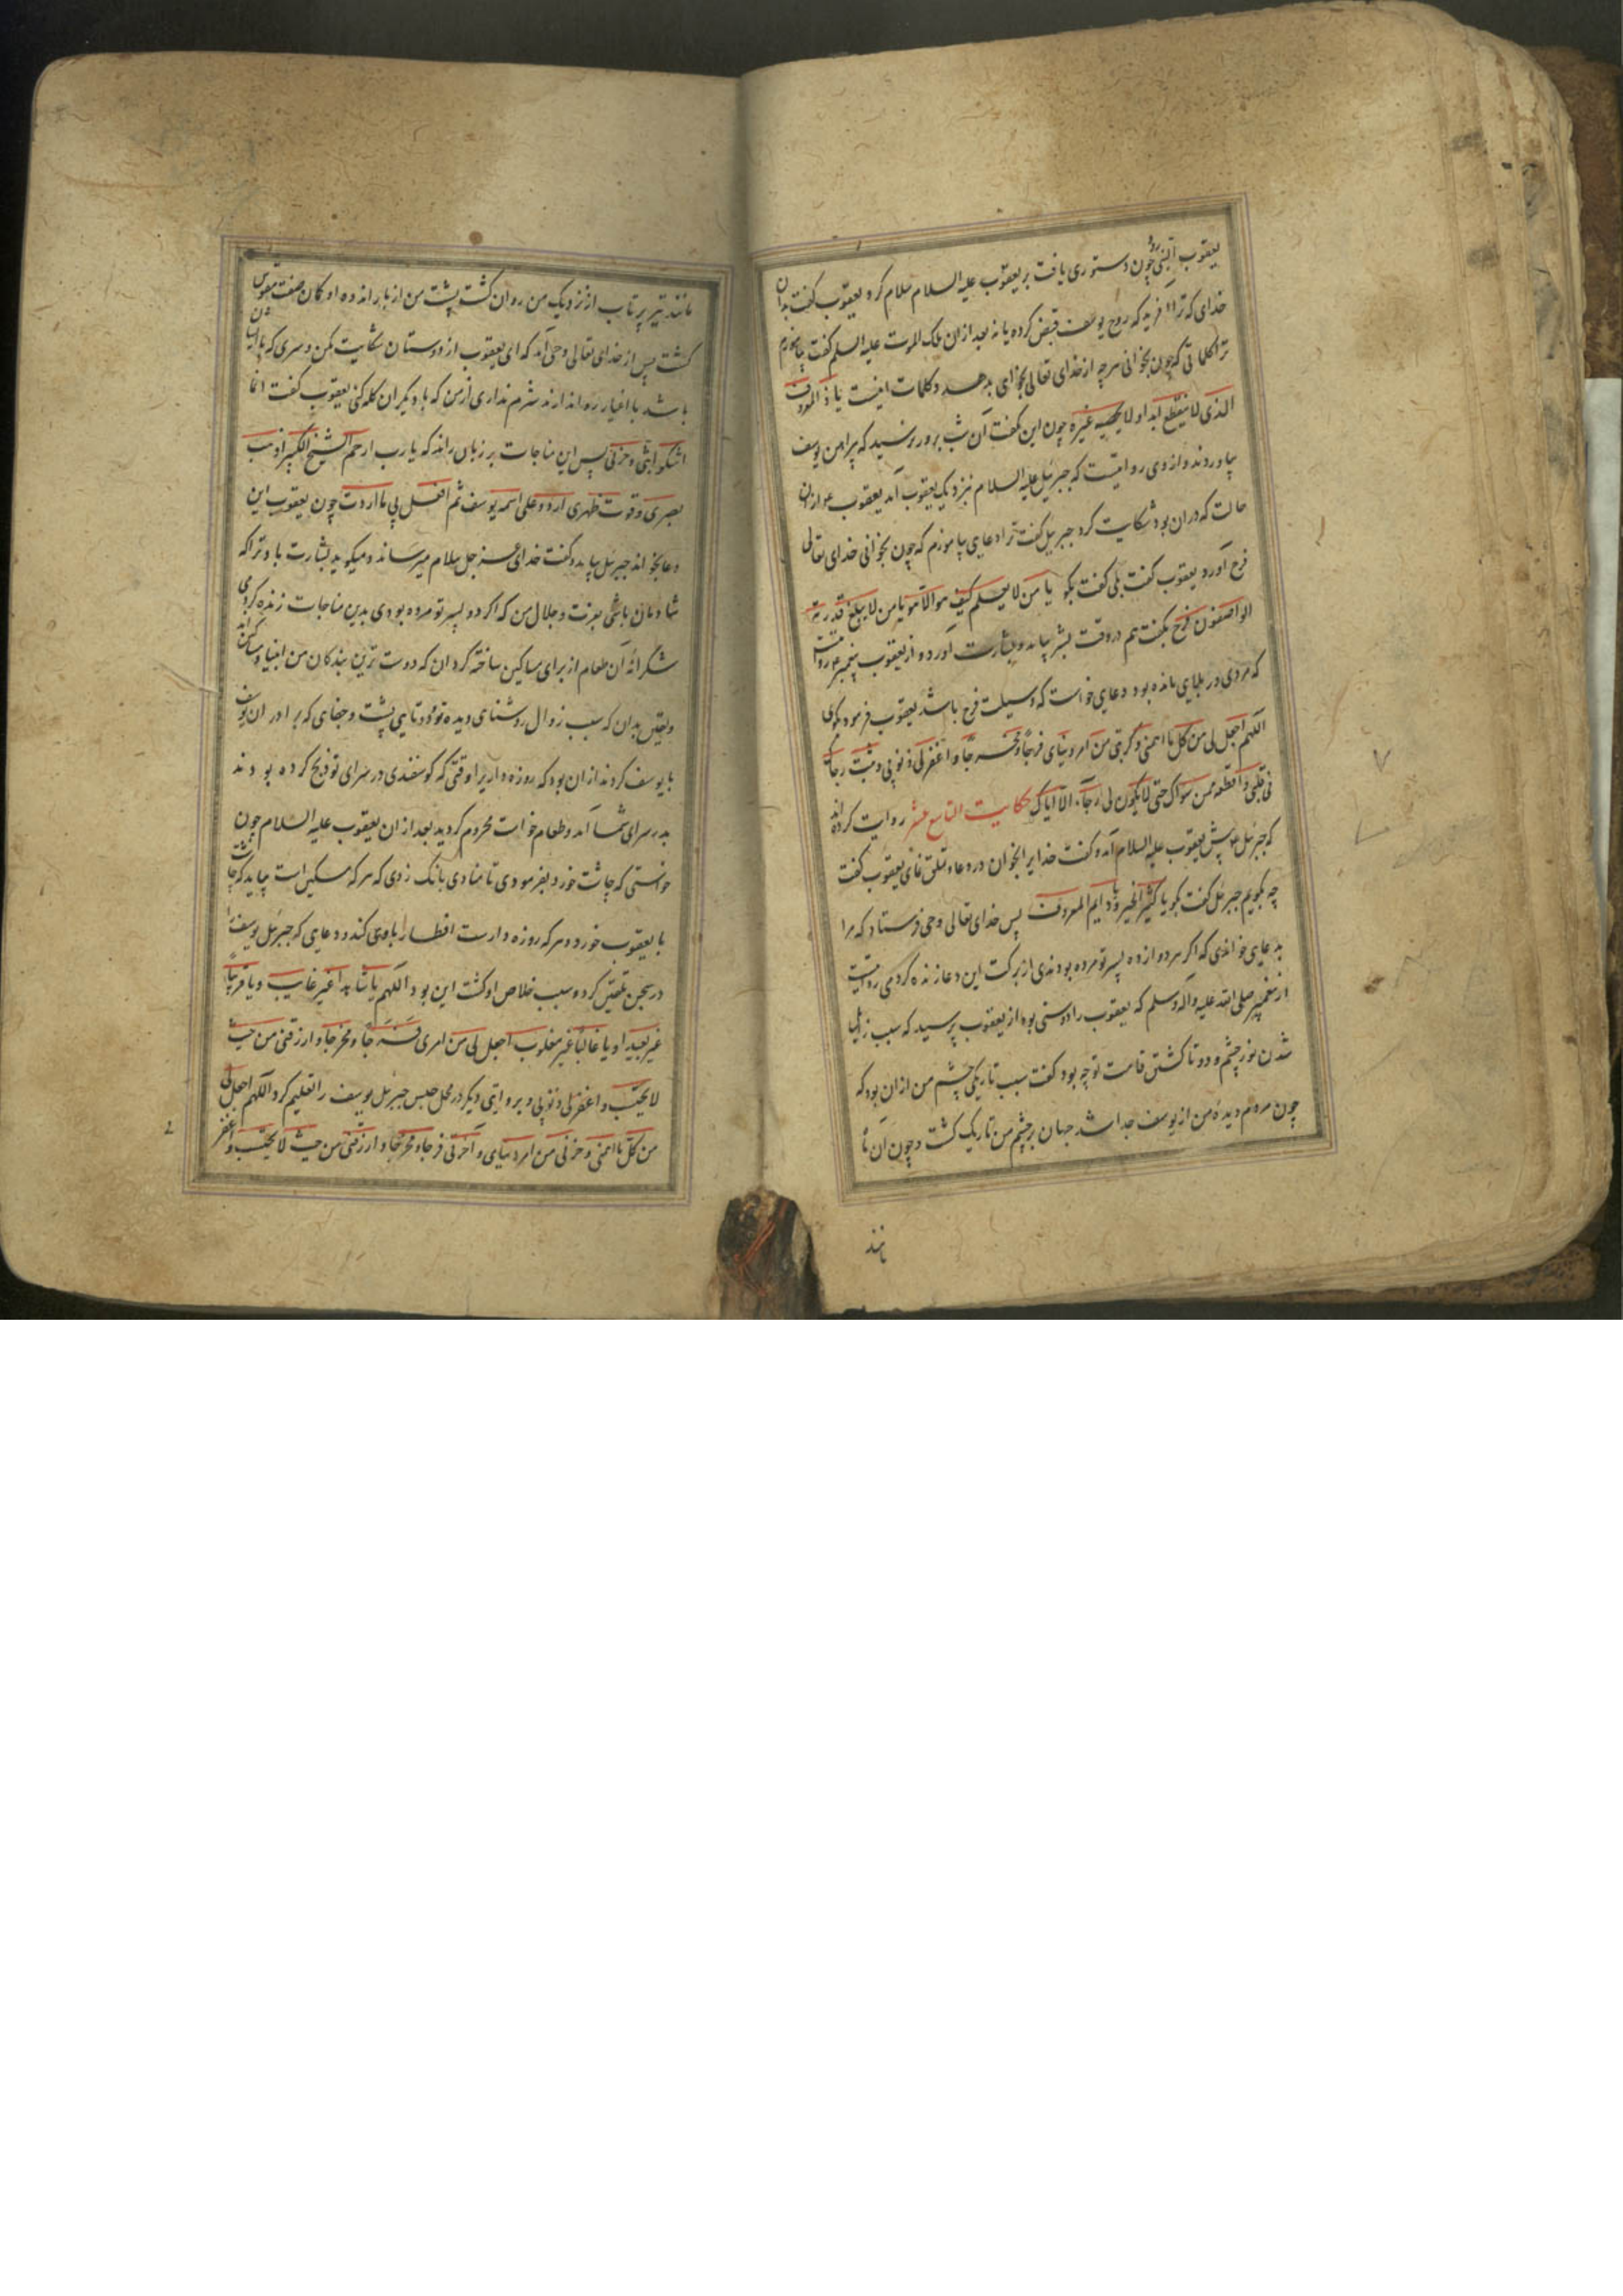 یعقوب البتی رود چون دستوری یافت بر یعقوب علیه السلام سلام کرد یعقوب گفت بدان
خدای که ترا آفرید که روح یوسف قبض کرده یا نه بعد ازان ملک الموت علیه السلم گفت بیاموزم
ترا کلماتی که چون بخوانی هرچه از خدای تعالی بخوای بدهد و کلمات اینست یا ذا المعروف
الذی لا ینقطع ابدا و لا یحصیه غیره چون این گفت آن شب بروز نرسید که پیراهن یوسف
بیاوردند و از وی روایتست که جبرئیل علیه السلام نزدیک یعقوب آمد یعقوب ازان
حالت که دران بود شکایت کرد جبرئیل گفت ترا دعای بیاموزم که چون بخوانی خدای تعالی
فرج آورد یعقوب گفت بلی گفت بگو یا من لا یعلم کیف هو الا هو یا من لا یبلغ قدرته
الواصفون فرج بگفت هم دروقت بشر بیامد و بشارت آورد و از یعقوب پیغمبر روایتست
که مردی در بلایی مانده بود دعای خواست که وسیلت فرج باشد یعقوب فرمود بگوی
اللهم اجعل لی من کل ما اهمنی و کربنی من امر دنیای فرجا و مخرجا و اغفر لی ذنوبی و ثبت رجاک
فی قلبی و اقطعه ممن سواک حتی لا یکون لی رجاء الا ایاک حکایت التاسع عشر روایت کرده‌اند
که جبرئیل پیش یعقوب علیه السلام آمد و گفت خدا را بخوان در دعا و تملق نمای یعقوب گفت
چه بگویم جبرئیل گفت بگو یا کثیر الخیر و یا دایم المعروف پس خدای تعالی وحی فرستاد که مرا
بدعایی خواندی که اگر هر دوازده پسر تو مرده بودندی از برکت این دعا زنده کردمی روایتست
از پیغمبر صلی الله علیه و آله و سلم که یعقوب را دوستی بود از یعقوب پرسید که سبب زایل
شدن نور چشم و دوتا گشتن قامت تو چه بود گفت سبب تاریکی چشم من ازان بود که
چون مردم دیده من از یوسف جدا شد جهان بر چشم من تاریک گشت و چون آن ماه
مانند
مانند تیر پرتاب از نزدیک من روان گشت پشت من از بار اندوه او کمان صفت مقوس
گشت پس از خدای تعالی وحی آمد که ای یعقوب از دوستان شکایت مکن و سری که با ایشان
باشد با اغیار روا ندارند شرم نداری از من که با دیگران گله کنی یعقوب گفت انما
اشکوا بثی و حزنی پس این مناجات بر زبان راند که یا رب ارحم الشیخ الکبیر اذهبت
بصری و قوت ظهری اردد علی اسمه یوسف ثم افعل بی ما اردت چون یعقوب این
دعا بخواند جبرئیل بیامد و گفت خدای عز و جل سلام میرساند و میگوید بشارت باد ترا که
شادمان باشی بعزت و جلال من که اگر دو پسر تو مرده بودی بدین مناجات زنده کردمی
شکرانه آن طعام از برای مساکین ساخته گردان که دوست ترین بندگان من انبیا و مساکین‌اند
و یقین بدان که سبب زوال روشنای دیده تو و دوتایی پشت و جفای که برادران یوسف
با یوسف کردند ازان بود که روزه داریرا وقتی که گوسفندی در سرای تو ذبح کرده بودند
بدر سرای شما آمد و طعام خواست محروم کردید بعد ازان یعقوب علیه السلام چون
خواستی که چاشت خورد بفرمودی تا منادی بانک زدی که هرکه مسکین است بیاید که چاشت
با یعقوب خورد و هرکه روزه دارست افطار با وی کند و دعایی که جبرئیل یوسف را
در سجن تلقین کرد و سبب خلاص او گشت این بود اللهم یا شاهدا غیر غایب و یا قریبا
غیر بعید او یا غالبا غیر مغلوب اجعل لی من امری فرجا و مخرجا و ارزقنی من حیث
لا یحتسب و اغفر لی ذنوبی و بروایتی دیگر در محل حبس جبرئیل یوسف را تعلیم کرد اللهم اجعل لی
من کل ما اهمنی و حزنی من امر دنیای و آخرتی فرجا و مخرجا و ارزقنی من حیث لا یحتسب و اغفر